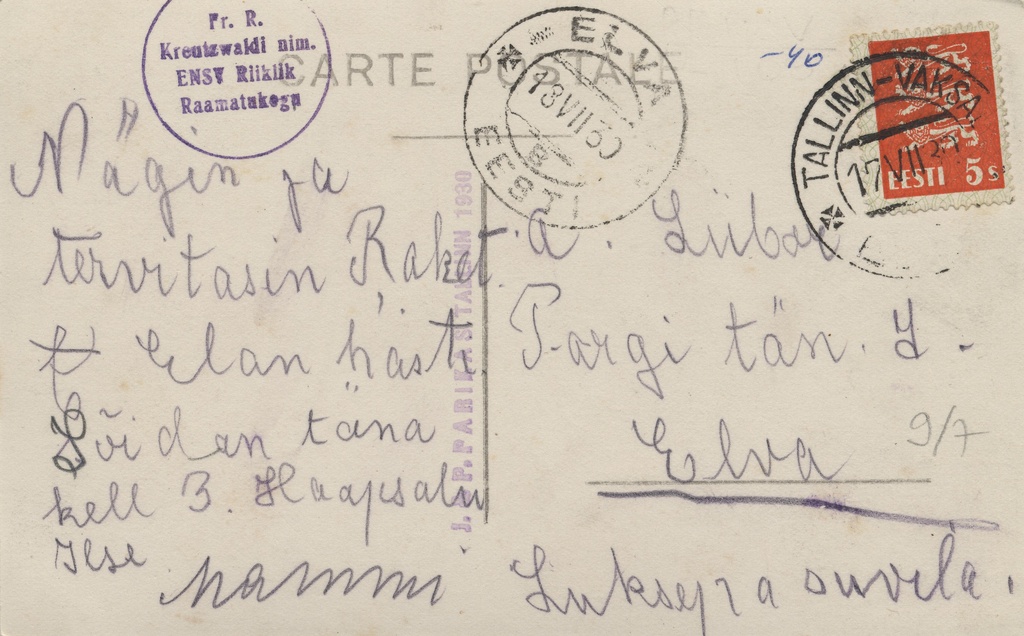 Fr. R.
Kreutzwaldi nim.
ENSV Riiklik
Raamatukogu
CARTE POSTALE
ELVA
18 VII 30
EESTI
-40
TALLINN-VAKSAL
17 VII 30
EESTI 5 S
J. & P. PARIKAS TALLINN 1930
Nägin ja
tervitasin
Elan hästi
Sõidan täna
kell 3. Haapsalu
Ilse
Mammi
A. Lübov
Pargi tän. I.
Elva
9/7
Luksepa suvila.